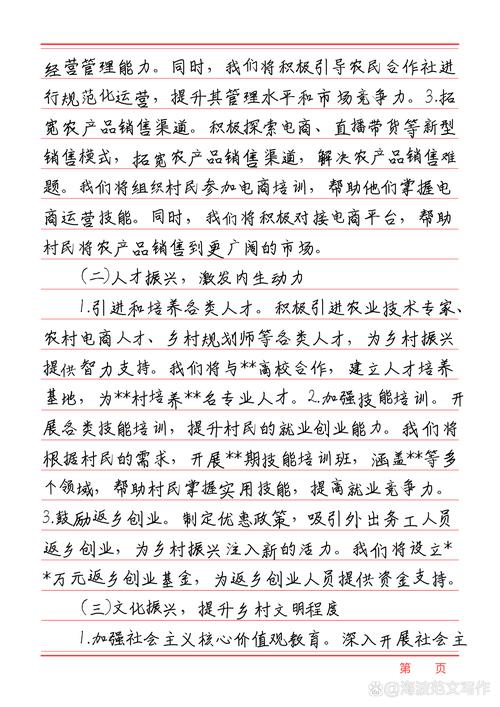 经营管理能力。同时，我们将积极引导农民合作社进
行规范化运营，提升其管理水平和市场竞争力。3.拓
宽农产品销售渠道。积极探索电商、直播带货等新型
销售模式，拓宽农产品销售渠道，解决农产品销售难
题。我们将组织村民参加电商培训，帮助他们掌握电
商运营技能。同时，我们将积极对接电商平台，帮助
村民将农产品销售到更广阔的市场。
(二)人才振兴，激发内生动力
1.引进和培养各类人才。积极引进农业技术专家、
农村电商人才、乡村规划师等各类人才，为乡村振兴
提供智力支持。我们将与**高校合作，建立人才培养
基地，为**村培养**名专业人才。2.加强技能培训。开
展各类技能培训，提升村民的就业创业能力。我们将
根据村民的需求，开展**期技能培训班，涵盖**等多
个领域，帮助村民掌握实用技能，提高就业竞争力。
3.鼓励返乡创业。制定优惠政策，吸引外出务工人员
返乡创业，为乡村振兴注入新的活力。我们将设立*
*万元返乡创业基金，为返乡创业人员提供资金支持。
(三)文化振兴，提升乡村文明程度
1.加强社会主义核心价值观教育。深入开展社会主
第 页
海波范文写作